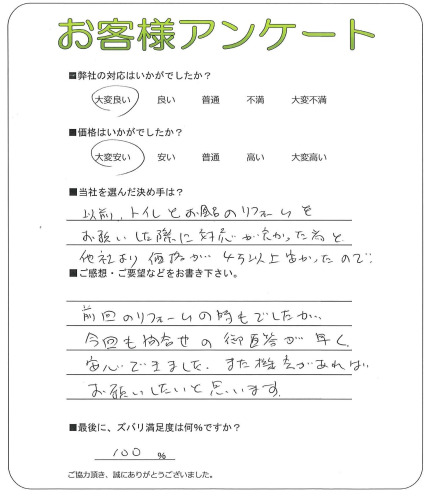 お客様アンケート
■弊社の対応はいかがでしたか？
大変良い 良い 普通 不満 大変不満
■価格はいかがでしたか？
大変安い 安い 普通 高い 大変高い
■当社を選んだ決め手は？
以前、トイレとお風呂のリフォームを
お願いした際に対応が良かった為と
他社より価格が4万以上安かったので
■ご感想・ご要望などをお書き下さい。
前回のリフォームの時もでしたが、
今回も問合せの御返答が早く、
安心できました。また機会があれば
お願いしたいと思います。
■最後に、ズバリ満足度は何%ですか？
100 %
ご協力頂き、誠にありがとうございました。